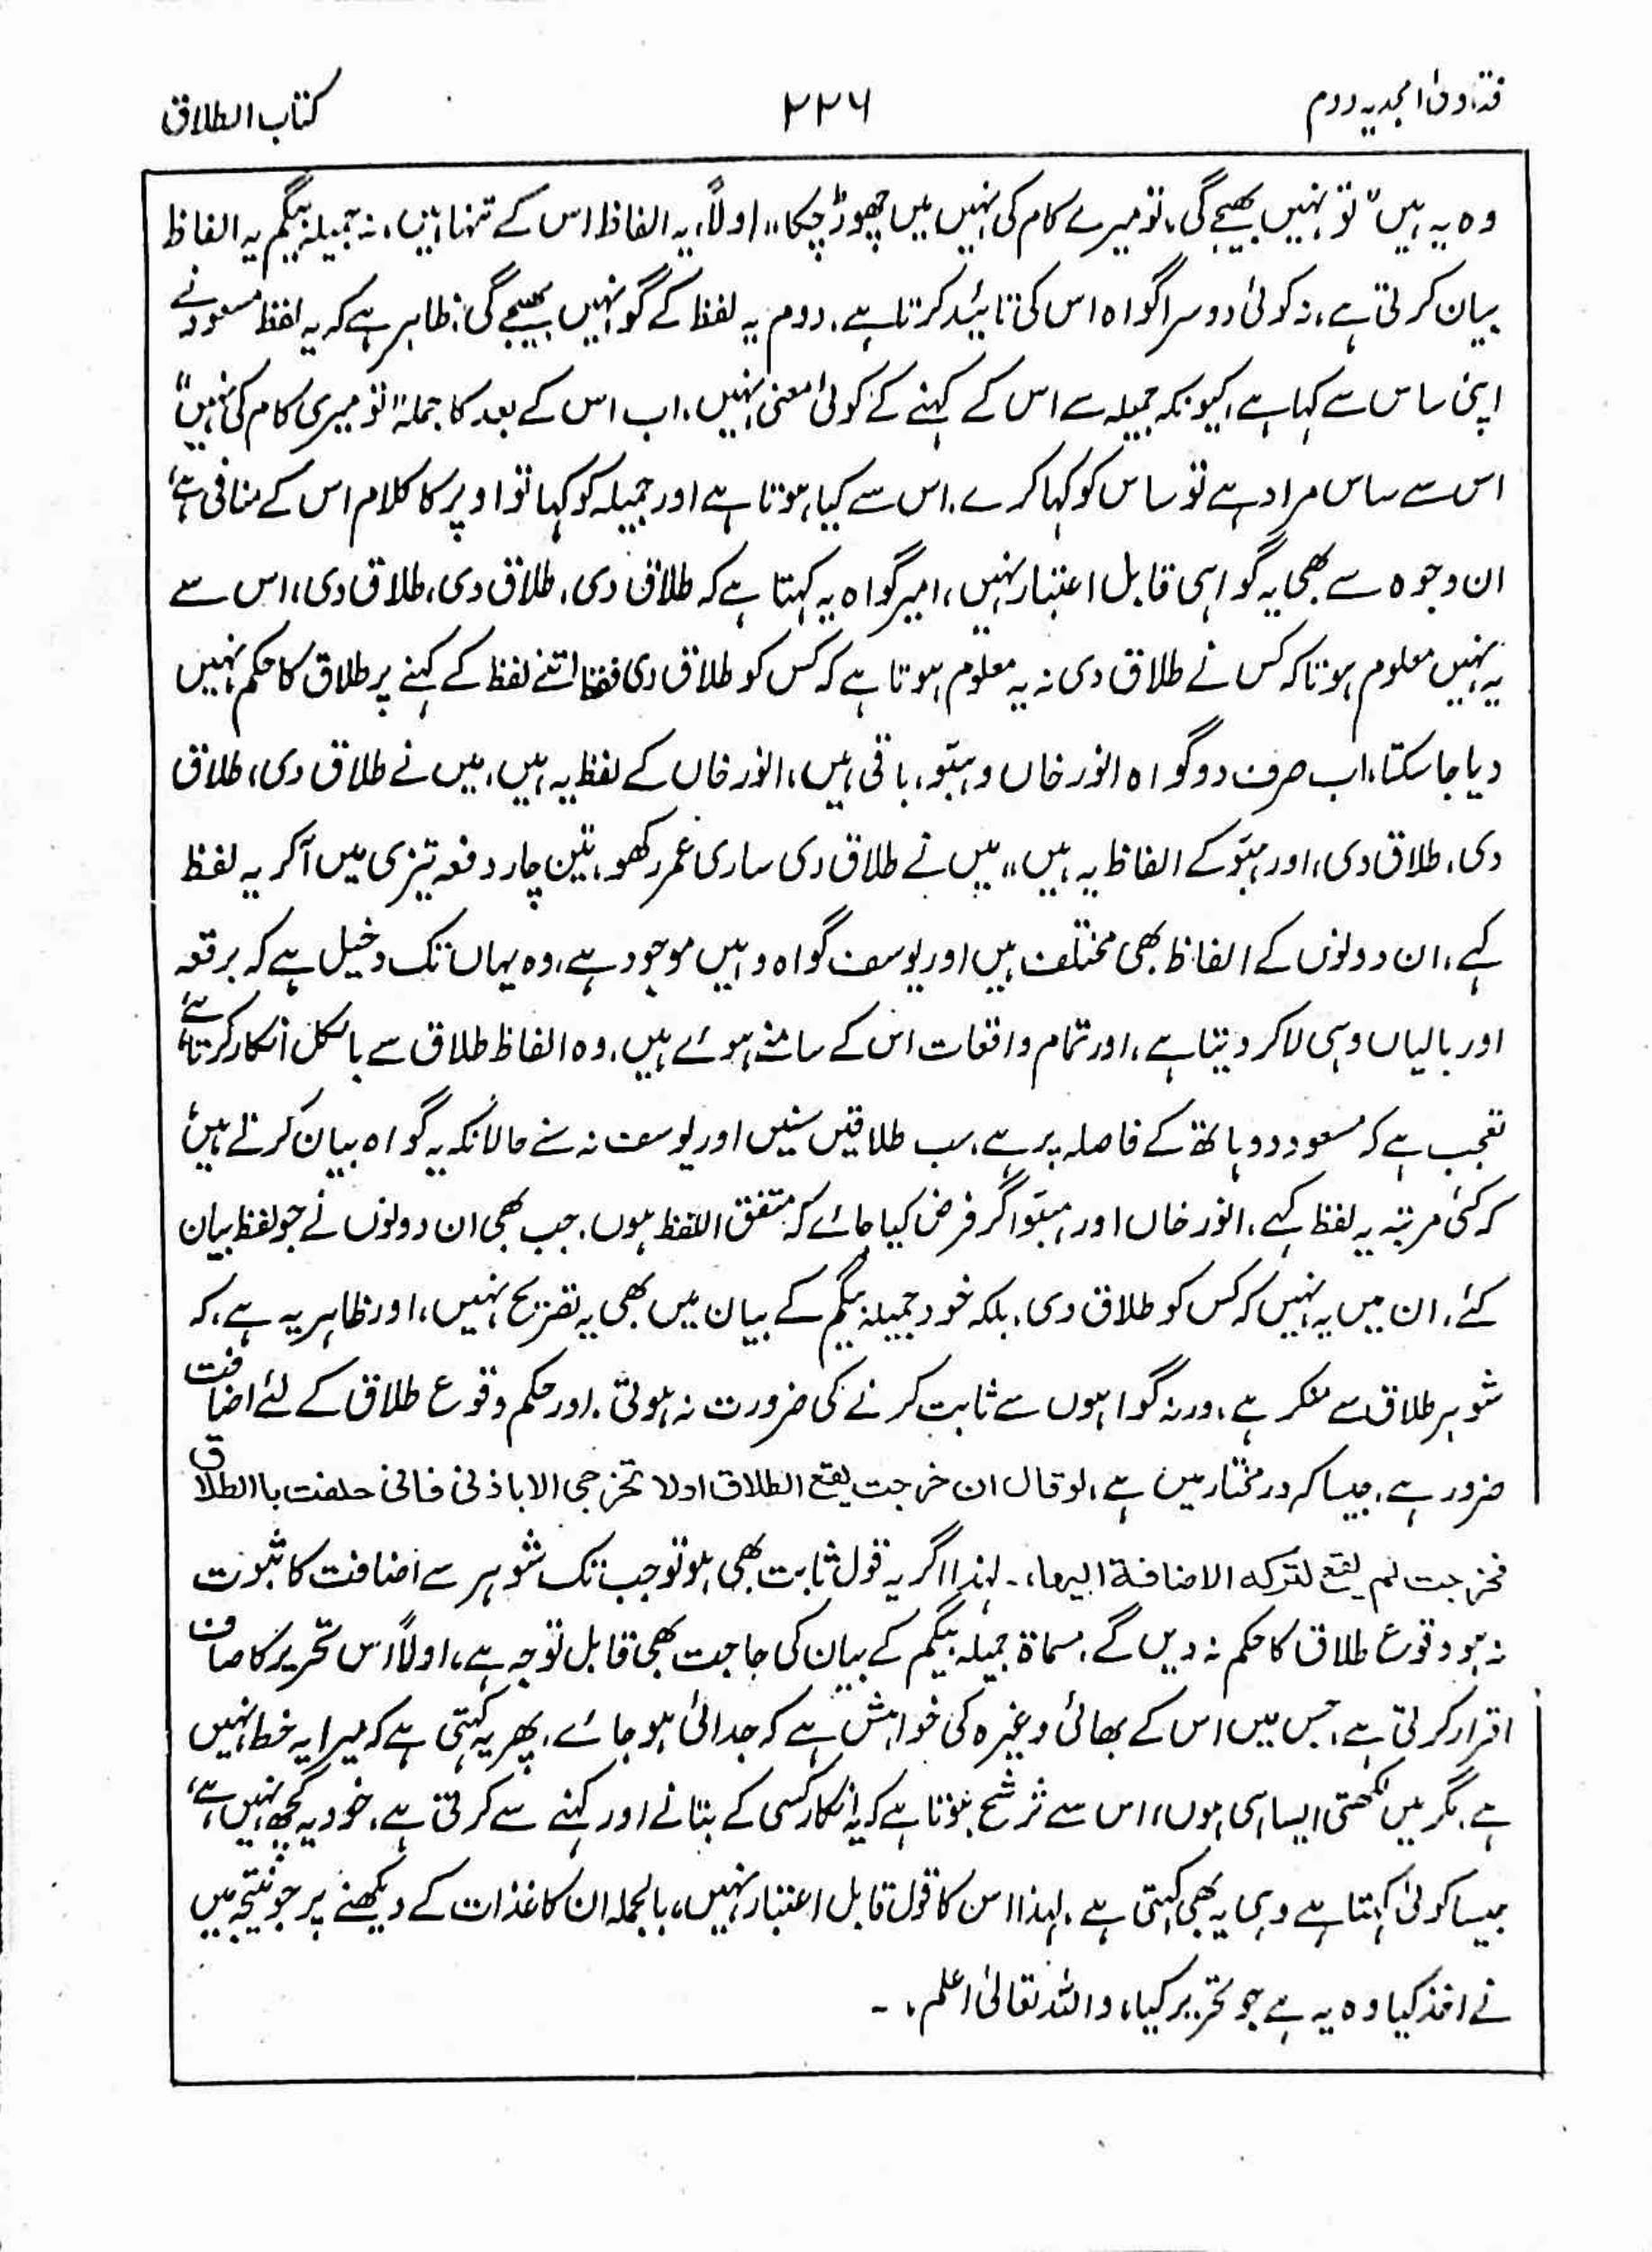 فتاویٰ امجدیہ دوم
۲۲۶
کتاب الطلاق
وہ یہ ہیں "تو نہیں بھیجے گی، تو میرے کام کی نہیں میں چھوڑ چکا،، اولاً، یہ الفاظ اس کے تنہا ہیں، نہ جمیلہ بیگم یہ الفاظ
بیان کرتی ہے، نہ کوئی دوسرا گواہ اس کی تائید کرتا ہے، دوم یہ لفظ کے گو نہیں بھیجے گی، ظاہر ہے کہ یہ لفظ مسعود نے
اپنی ساس سے کہا ہے، کیونکہ جمیلہ سے اس کے کہنے کے کوئی معنی نہیں، اب اس کے بعد کا جملہ "تو میری کام کی نہیں"
اس سے ساس مراد ہے تو ساس کو کہا کرے، اس سے کیا ہوتا ہے اور جمیلہ کو کہا تو اوپر کا کلام اس کے منافی ہے،
ان وجوہ سے بھی یہ گواہی قابل اعتبار نہیں، امیر گواہ یہ کہتا ہے کہ طلاق دی، طلاق دی، طلاق دی، اس سے
یہ نہیں معلوم ہوتا کہ کس نے طلاق دی نہ یہ معلوم ہوتا ہے کہ کس کو طلاق دی فقط اتنے لفظ کے کہنے پر طلاق کا حکم نہیں
دیا جا سکتا، اب صرف دو گواہ انور خاں و ہبّو، باقی ہیں، انور خاں کے لفظ یہ ہیں، میں نے طلاق دی، طلاق
دی، طلاق دی، اور ہبّو کے الفاظ یہ ہیں،، میں نے طلاق دی ساری عمر رکھو، تین چار دفعہ تیزی میں آکر یہ لفظ
کہے، ان دونوں کے الفاظ بھی مختلف ہیں اور یوسف گواہ وہیں موجود ہے، وہ یہاں تک دخیل ہے کہ برقعہ
اور بالیاں وہی لا کر دیتا ہے، اور تمام واقعات اس کے سامنے ہوئے ہیں، وہ الفاظ طلاق سے بالکل انکار کرتا ہے،
تعجب ہے کہ مسعود دو ہاتھ کے فاصلہ پر ہے، سب طلاقیں سنیں اور یوسف نہ سنے حالانکہ یہ گواہ بیان کرتے ہیں،
کہ کئی مرتبہ یہ لفظ کہے، انور خاں اور ہبّو اگر فرض کیا جائے کہ متفق اللفظ ہوں، جب بھی ان دونوں نے جو لفظ بیان
کئے، ان میں یہ نہیں کہ کس کو طلاق دی، بلکہ خود جمیلہ بیگم کے بیان میں بھی یہ تصریح نہیں، اور ظاہر یہ ہے، کہ
شوہر طلاق سے منکر ہے، ورنہ گواہوں سے ثابت کرنے کی ضرورت نہ ہوتی، اور حکم وقوع طلاق کے لئے اضافت
ضرور ہے، جیسا کہ درمختار میں ہے، لو قال ان خرجت یقع الطلاق اولا تخرجی الا باذنی فانی حلفت باالطلاق
فخرجت لم یقع لترکہ الاضافۃ الیھا،۔ لہٰذا اگر یہ قول ثابت بھی ہو تو جب تک شوہر سے اضافت کا ثبوت
نہ ہو وقوع طلاق کا حکم نہ دیں گے، مسماۃ جمیلہ بیگم کے بیان کی جاجت بھی قابل توجہ ہے، اولاً اس تحریر کا صاف
اقرار کرتی ہے، جس میں اس کے بھائی وغیرہ کی خواہش ہے کہ جدائی ہو جائے، پھر یہ کہتی ہے کہ میرا یہ خط نہیں
ہے، مگر میں لکھتی ایسا ہی ہوں، اس سے ترشح ہوتا ہے کہ یہ انکار کسی کے بتانے اور کہنے سے کرتی ہے، خود یہ کچھ نہیں ہے،
جیسا کوئی کہتا ہے وہی یہ بھی کہتی ہے، لہٰذا اس کا قول قابل اعتبار نہیں، بالجملہ ان کاغذات کے دیکھنے پر جو نتیجہ میں
نے اخذ کیا وہ یہ ہے جو تحریر کیا، واللہ تعالیٰ اعلم،۔